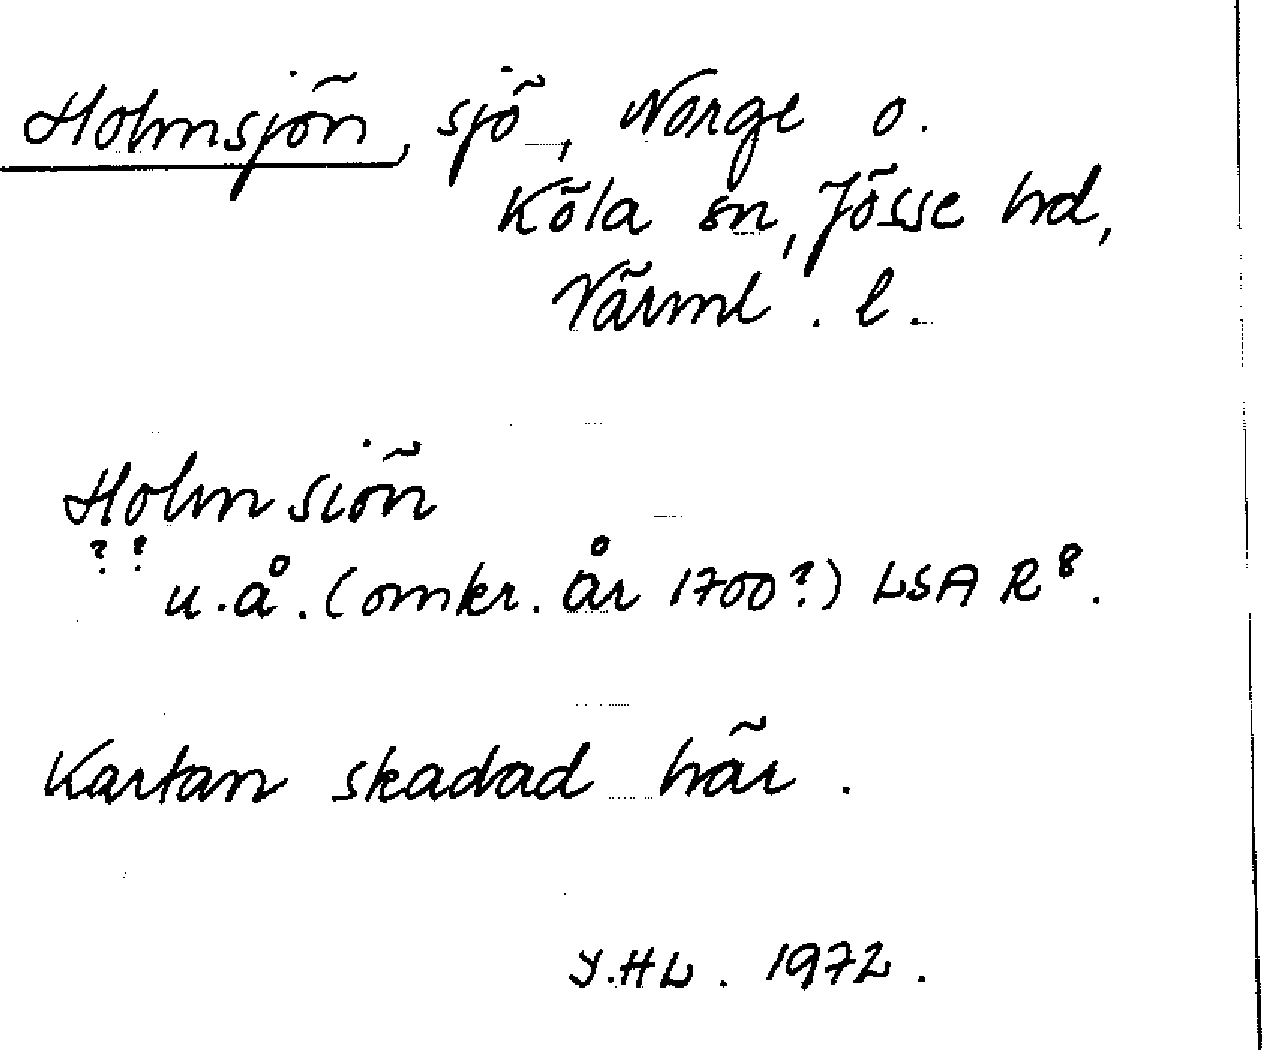 Holmsjön, sjö, Norge o.
Köla sn, Jösse hd,
Värml. l.
Holmsiön
? ?
u.å. (omkr. år 1700?) LSA R8.
Kartan skadad här.
Y.HL. 1972.